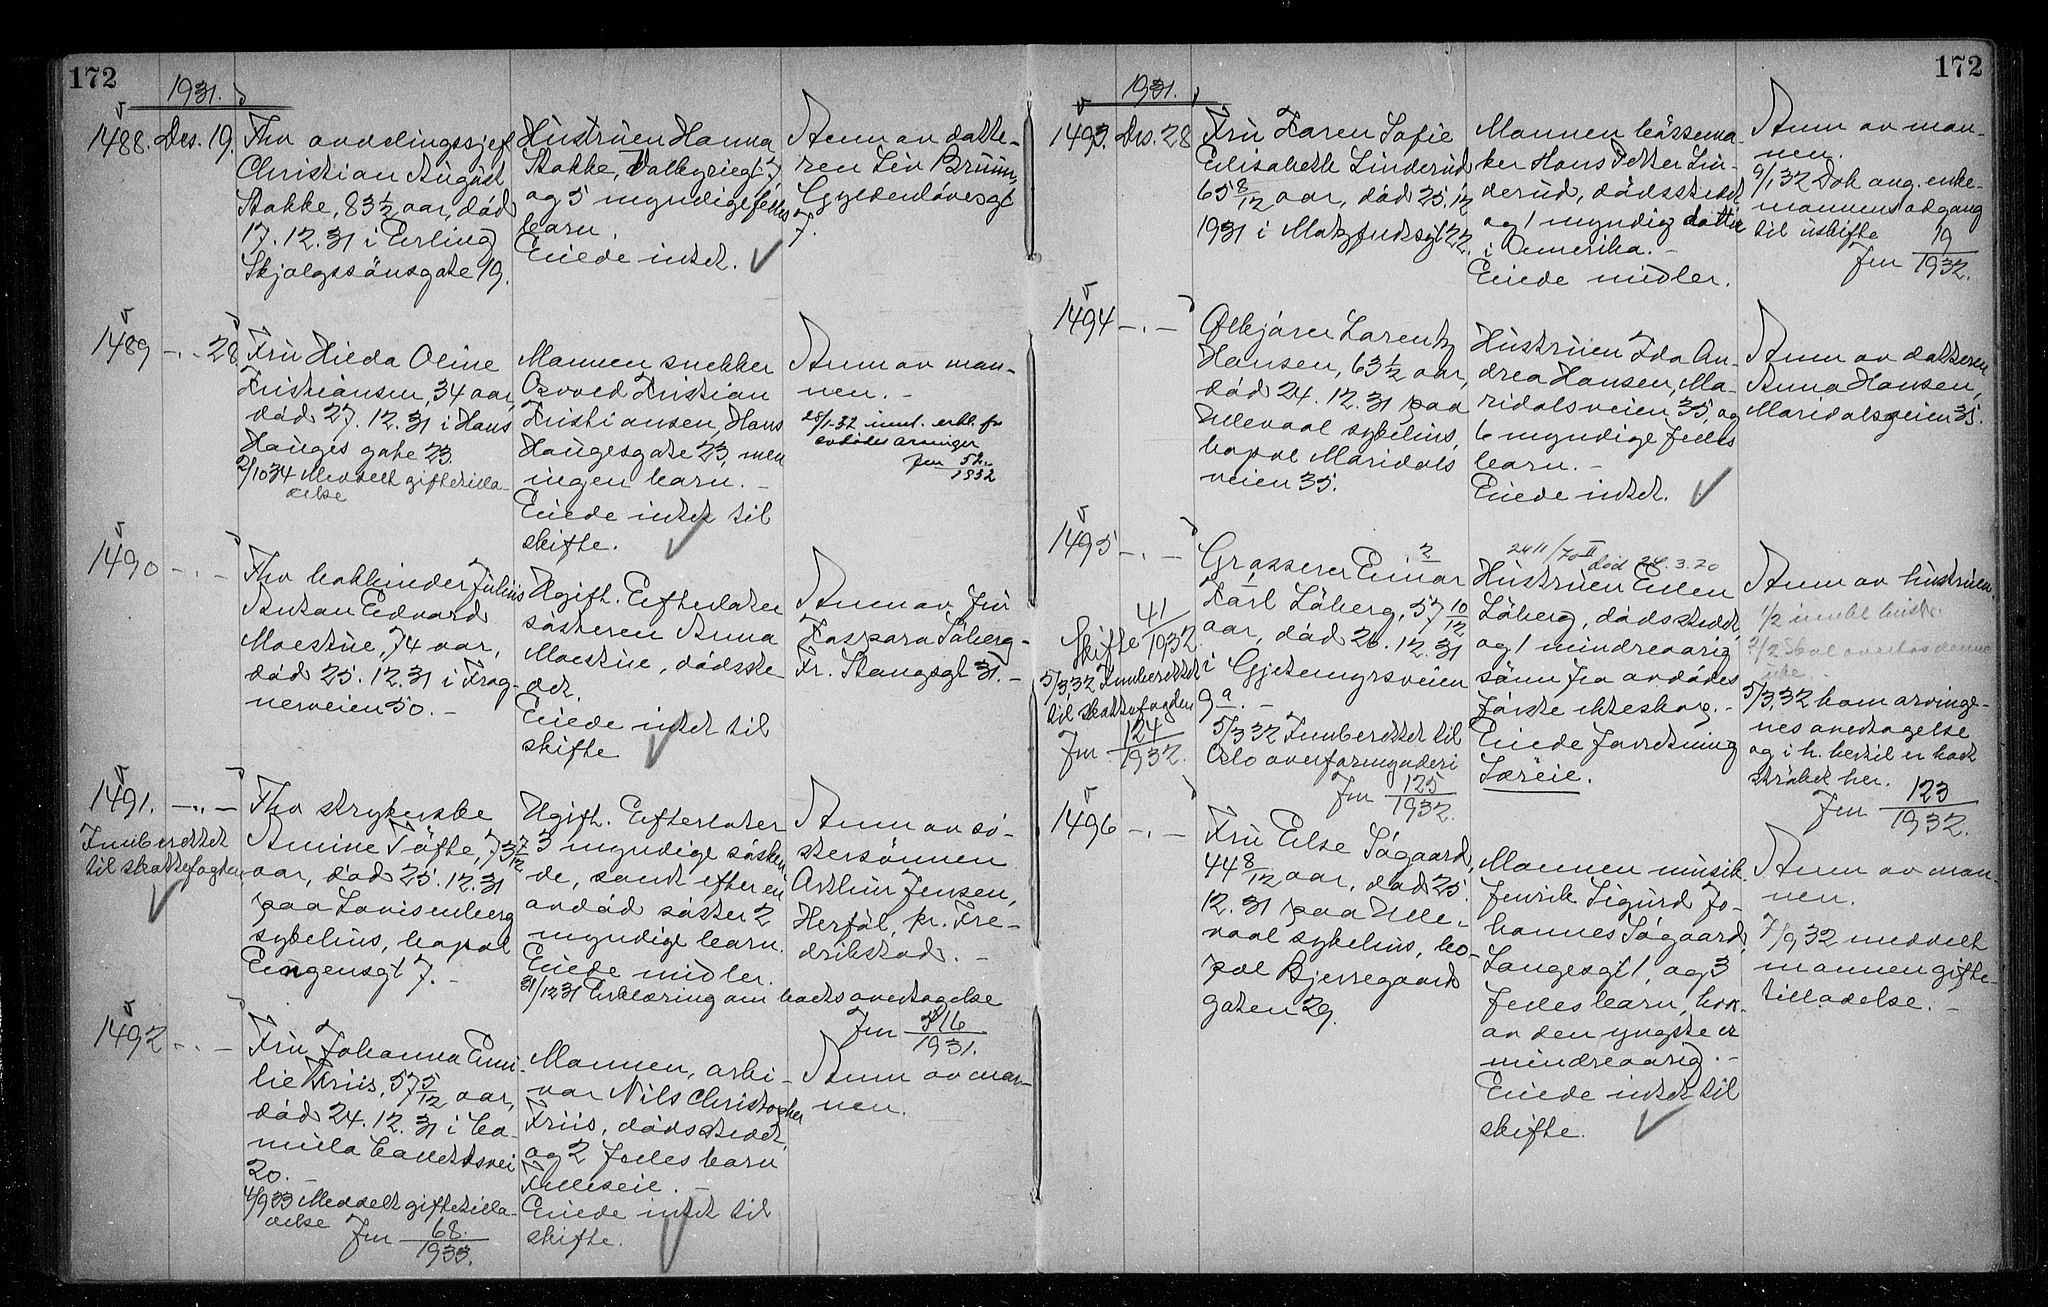 172
1931.
1488. Des. 19.
Fhv avdelingssjef
Christian August
Stokke, 83 1/2 aar, död
17.12.31 i Erling
Skjalgssönsgate 19.
Hustruen Hanna
Stokke, Valkyriegt 7
og 5 myndige felles
barn.
Eiede intet.
Anm av datte-
ren Liv Bruun,
Gyldenlövesgt
7.
1489 -.- 28
Fru Hilda Oline
Kristiansen, 34 aar,
död 27.12.31 i Hans
Hauges gate 23.
2/10 34 Meddelt giftetilla-
delse
Mannen snekker
Osvald Kristian
Kristiansen, Hans
Haugesgate 23, men
ingen barn. -
Eiede intet til
skifte.
Anm av man-
nen. -
28/1-32 innt. erkl. fr
avdödes arvinger
Jnr 52
1932
1490 -.-
Fhv bokbinder Julius
Anton Edvard
Moestue, 74 aar,
död 25.12.31 i Frog-
nerveien 50. -
Ugift. Efterlater
sösteren Anna
Moestue, dödsste-
det.
Eiede intet til
skifte
Anm av fru
Kaspara Söberg -
Fr. Stangsgt 31. -
1491. -.-
Innberettet
til skattefogden
Fhv strykerske
Amine Töfte, 73 7/12
aar, död 25.12.31
paa Lovisenberg
sykehus, bopel
Eugensgt 7. -
Ugift. Efterlater
3 myndige sösken-
de, samt efter en
avdöd söster 2
myndige barn.
Eiede midler.
31/12 31 Erklæring om boets overtagelse
Jnr 716
1931.
Anm av sö-
stersönnen
Arthur Jensen,
Herföl, pr. Fre-
drikstad. -
1492 -.-
Fru Johanna Emi-
lie Friis, 57 5/12 aar,
död 24.12.31 i Ca-
milla Colletts vei
20. -
4/9 33 Meddelt giftetilla-
delse Jnr 68
1933.
Mannen, arbi-
var Nils Christopher
Friis, dödsstedet
og 2 felles barn
Felleseie. -
Eiede intet til
skifte.
Anm av man-
nen.
172
1931.
1493. Des. 28
Fru Karen Sofie
Elisabeth Linderud
65 8/12 aar, död 25.12
1931 i Maltzfudsgt 22.
Mannen börsema-
ker Hans Petter Lin-
derud, dödsstedet
og 1 myndig datter
i Amerika. -
Eiede midler.
Anm av man-
nen.
9/1 32 Dok ang. enke-
mannens adgang
til uskifte 19
Jnr 1932.
1494 -.-
Ölkjörer Lorentz
Hansen, 63 1/2 aar,
död 24.12.31 paa
Ullevaal sykehus,
bopel Maridals
veien 35.
Hustruen Ida An-
drea Hansen, Ma-
ridalsveien 35, og
6 myndige felles
barn. -
Eiede intet.
Anm av datteren
Anna Hansen,
Maridalsveien 35.
1495 -.-
Skifte 41
1932
5/3 32 Innberettet
til skattefogden
Jnr 124
1932.
Grosserer Einar
Karl Löberg, 57 10/12
aar, död 26.12.31
i Gjetemyrsveien
9 a. -
5/3 32 Innberettet til
Oslo overformynderi
Jnr 125
1932.
2411/70 II död 24.3.70
Hustruen Ellen
Löberg, dödsstedet,
og 1 mindreaarig
sönn fra avdödes
förste ekteskap. -
Eiede forretning
Særeie.
Anm av hustruen.
5/3.32 kom arvinge-
nes overtagelse
og i h. hertil er boet
ströket her. 123
Jnr 1932.
1496 -.-
Fru Else Sögaard,
44 8/12 aar, död 25.
12.31 paa Ulle-
vaal sykehus, bo-
pel Bjerregaards
gaten 29.
Mannen musik
Henrik Sigurd Jo-
hannes Sögaard
Langesgt 1, og 3
felles barn, hvor-
av den yngste er
mindreaarig. -
Eiede intet til
skifte.
Anm av man-
nen.
7/9 32 meddelt
mannen gifte-
tilladelse. -